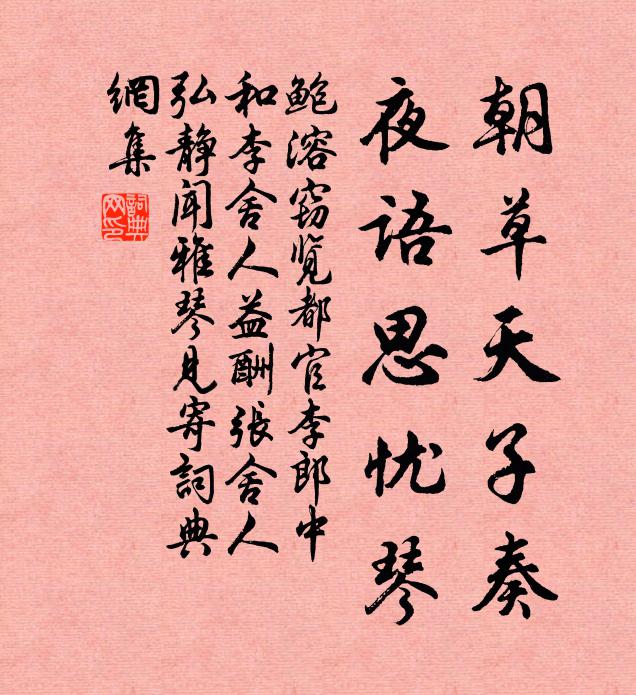 朝草天子奏
夜語思忧琴
鲍溶窃览都官李郎中
和李舍人益酬張舍人
弘静闻雅琴見寄詞典
網集
詞典网印